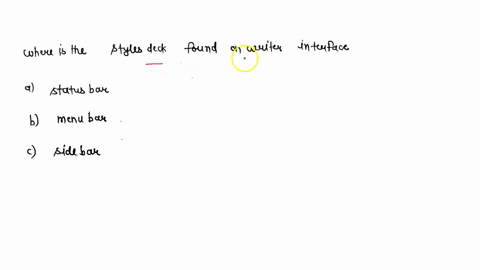 where is the styles deck found on writer interface
a) status bar
b) menu bar
c) side bar